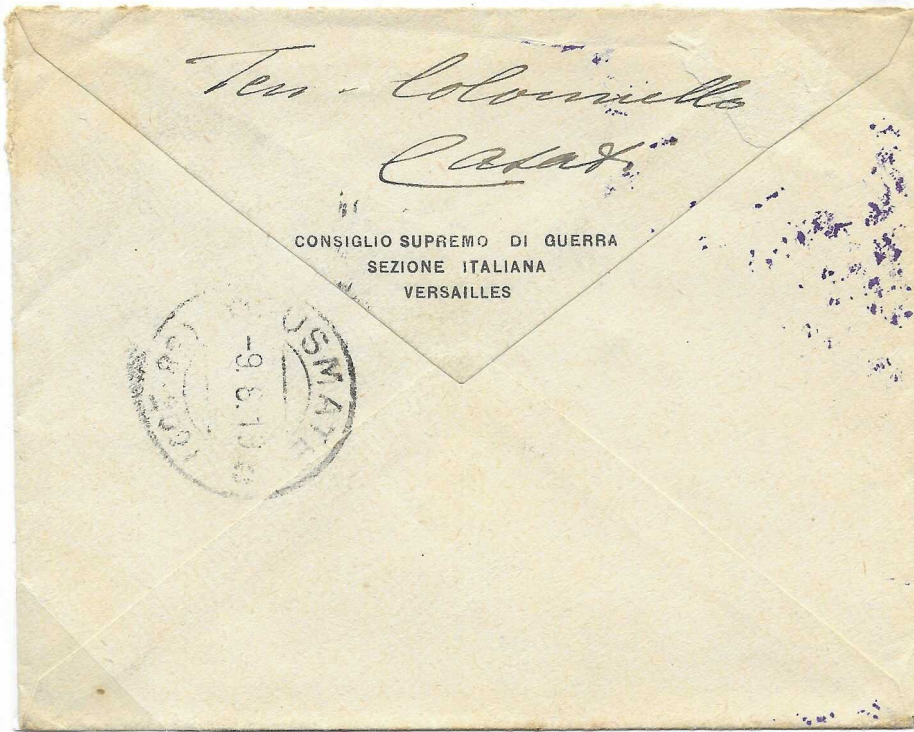 Ten. Colonnello
Casati
CONSIGLIO SUPREMO DI GUERRA
SEZIONE ITALIANA
VERSAILLES
USMATE
-9.6.19